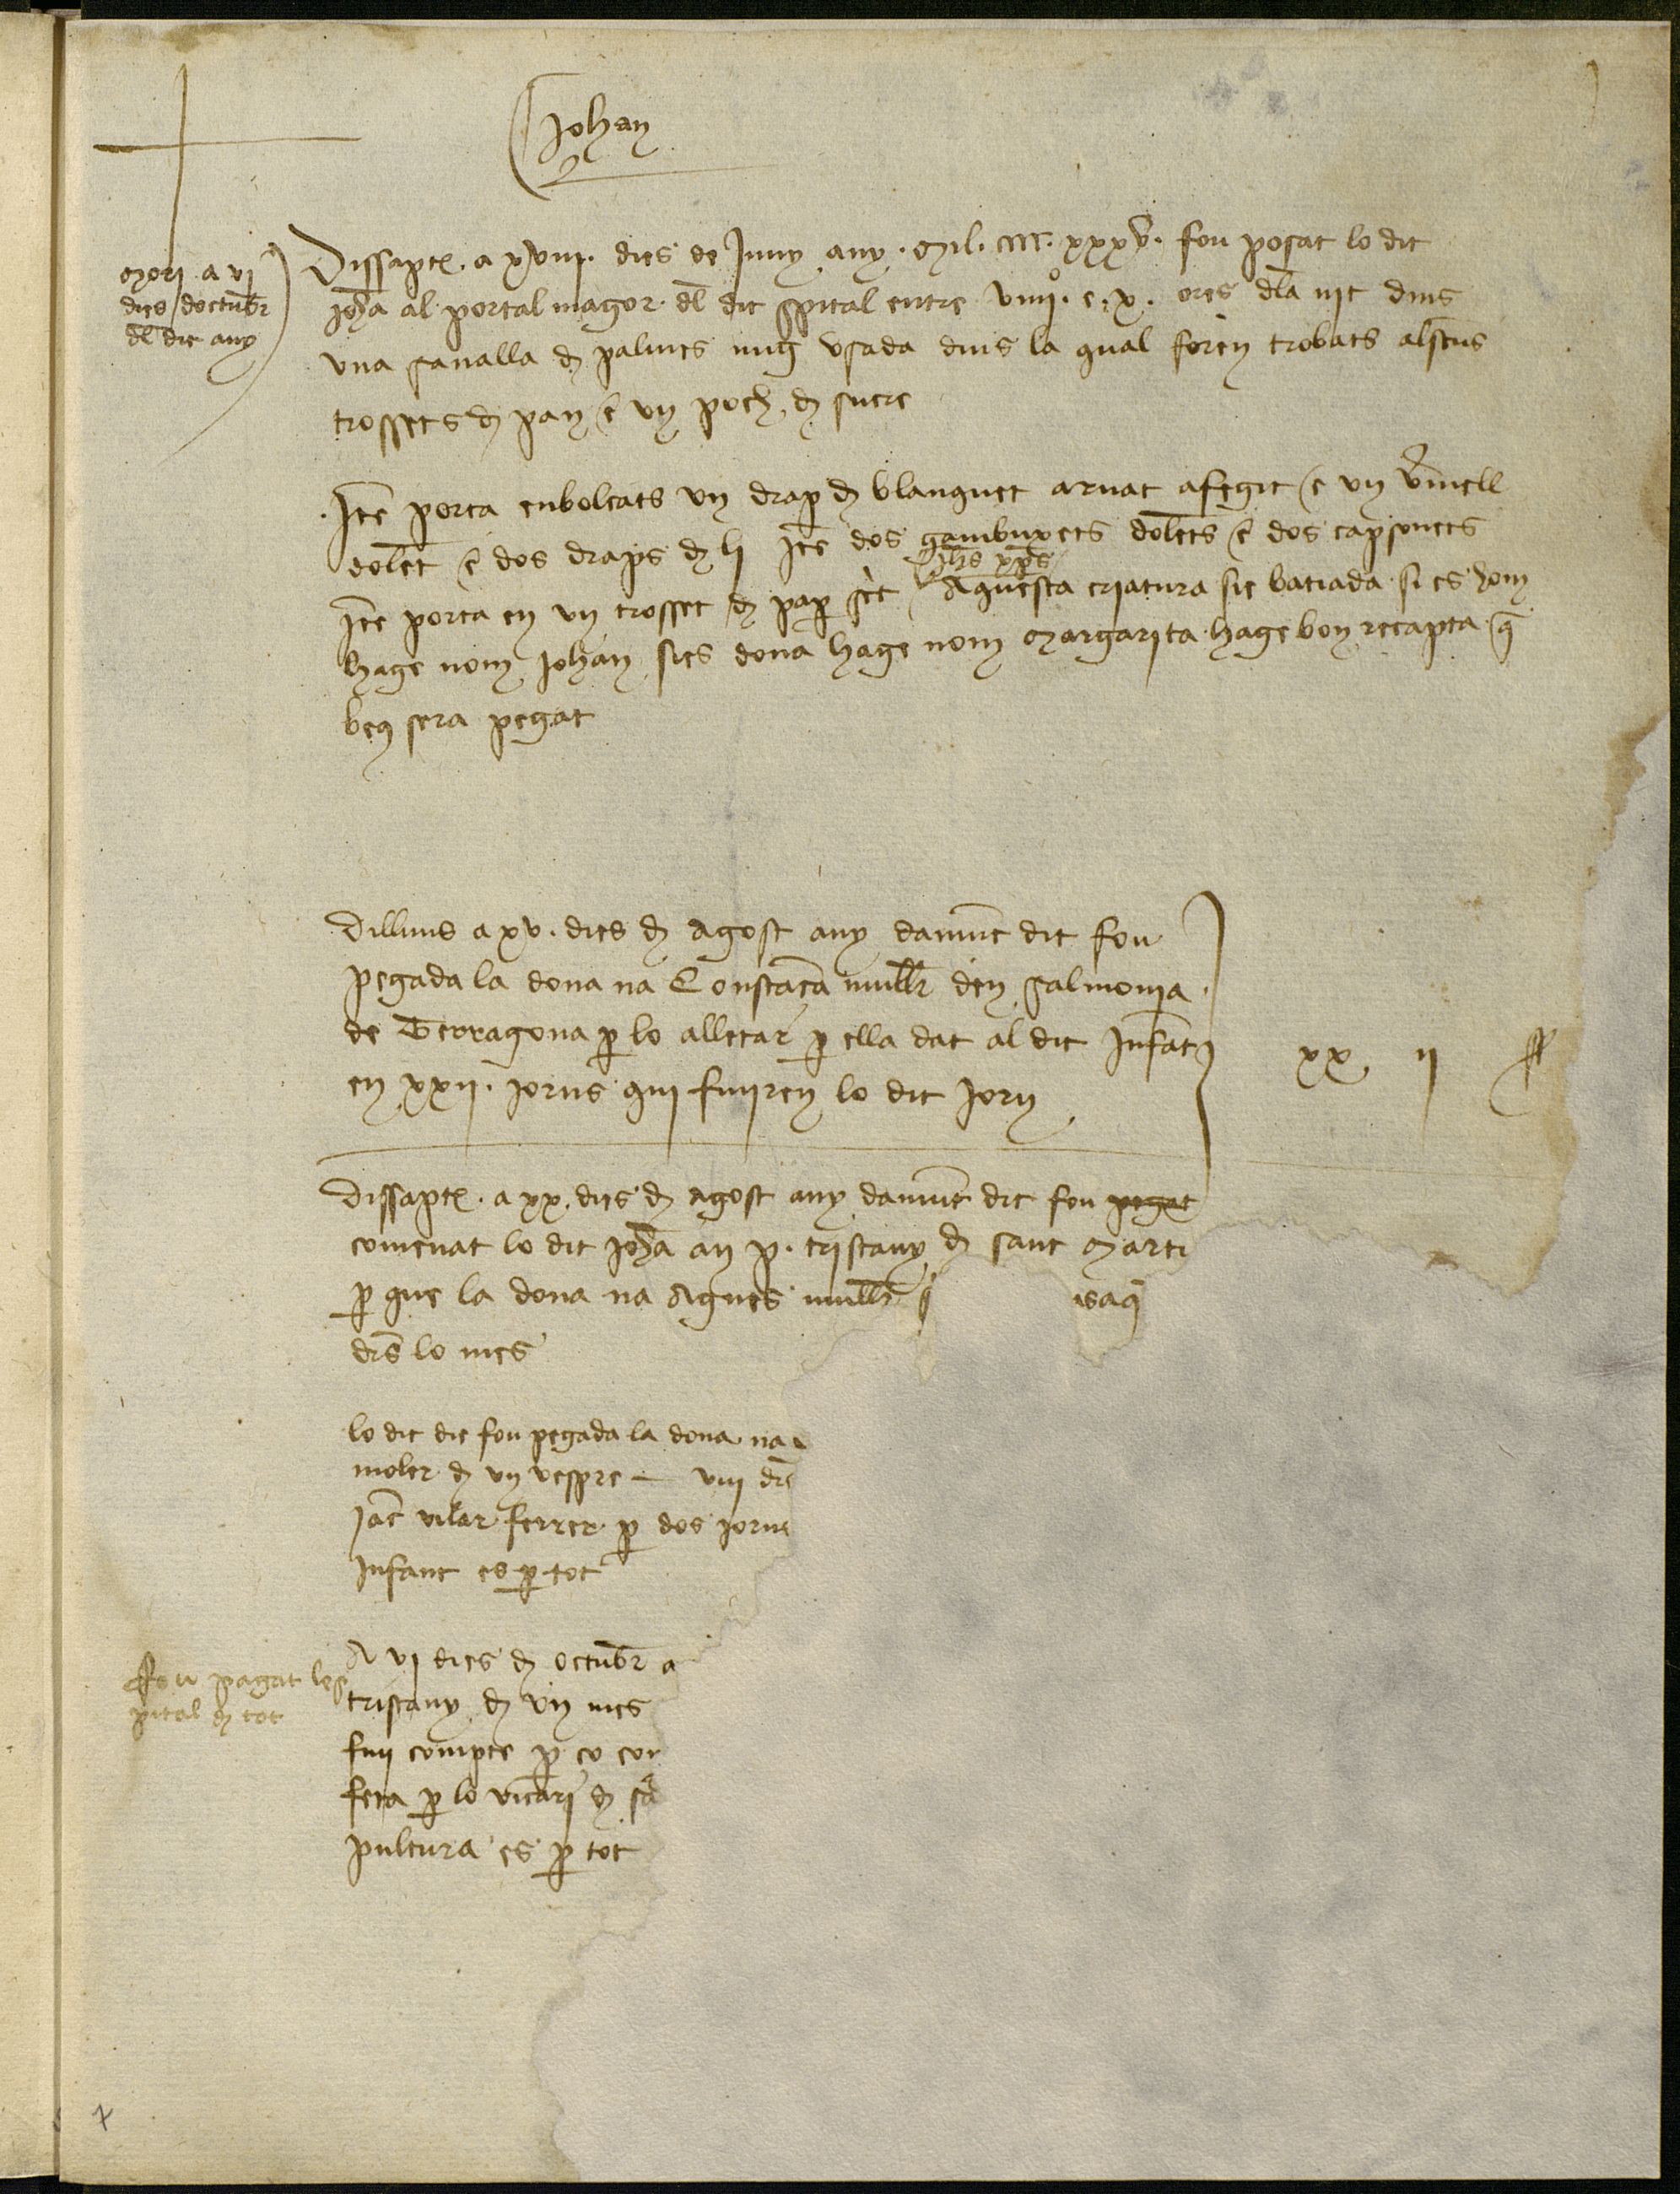 Johan
mori a vj
dies doctubr
dl dit any
Dissapte a xviii dies de Juny any Mil cccc xxxv fou posat lo dit
Joha al portal magor dl dit spital entre viiii e x ores dla nit dins
una sanalla d palmes mig usada dins la qual foren trobats alscuns
trossets d pan e un poch d sucre
Ite porta enbolcats un drap d blanquet arnat afegit e un vmell
dolet e dos draps d li Ite dos gambuxets dolets e dos capsonets
Ihs xps
Ite porta en un trosset d pap scrit Aquesta criatura sie batiada si es hom
hage nom Johan sies dona hage nom Margarita hage bon recapta q
ben sera pagat
Dilluns a xv dies d Agost any damut dit fou
pegada la dona na Constaca mullr den Salmonia
de Terragona p lo alletar p ella dat al dit Infat
en xxii jorns qui finiren lo dit jorn
xx ii ff
Dissapte a xx dies d agost any damut dit fou pagat
comenat lo dit Joha an p tristany d sant Marti
p que la dona na Agnes mullr s
drs lo mes
lo dit die fou pegada la dona na
moler d un vespre viii drs
Jac vilar ferrer p dos jorns
Infant es p tot
A vi dies d octubr a
tristany d un mes
fini compte p ço cor
feta p lo vicari d sa
pultura es p tot
Fou pagat les
pital d tot